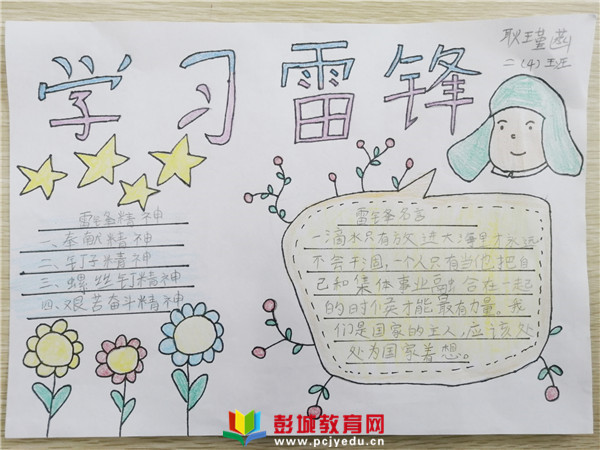 学习雷锋
耿瑾菡
二(4)班
雷锋精神
一、奉献精神
二、钉子精神
三、螺丝钉精神
四、艰苦奋斗精神
雷锋名言
一滴水只有放进大海里才永远
不会干涸,一个人只有当他把自
己和集体事业融合在一起
的时候才能最有力量。我
们是国家的主人,应该处
处为国家着想。
彭城教育网
www.pcjyedu.cn